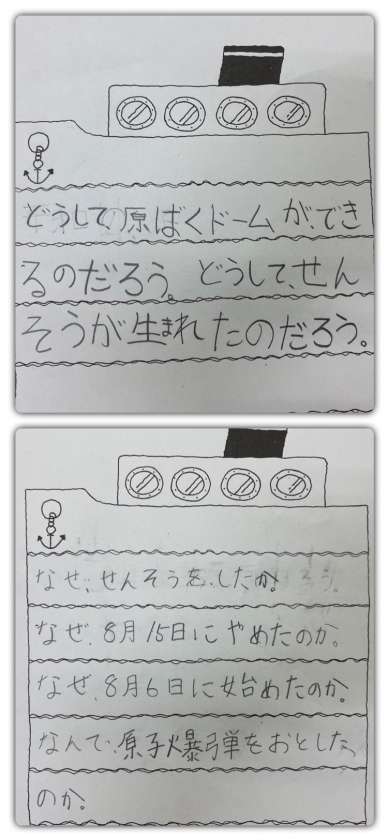 どうして、原ばくドームが、でき
るのだろう。どうして、せん
そうが生まれたのだろう。
なぜ、せんそうを、したか。
なぜ、8月15日にやめたのか。
なぜ、8月6日に始めたのか。
なんで、原子爆弾をおとした、
のか。